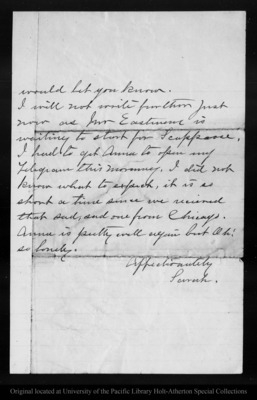 would let you know.
I will not write further just
now as Mr Eastmone is
waiting to start for Scappoose.
I had to get Anna to open my
telegram this morning, I did not
know what to expect, it is so
short a time since we received
that sad, sad one from Chicago.
Anna is pretty well again but Oh!
so lonely.
Affectionately
Sarah.
Original located at University of the Pacific Library Holt-Atherton Special Collections